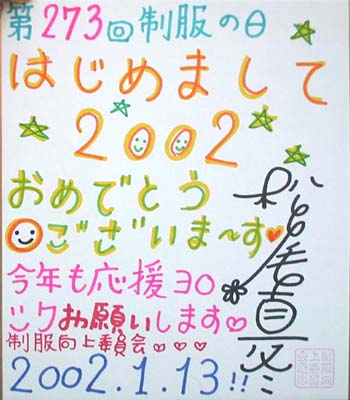 第273回制服の日
はじめまして
2002
おめでとう
ございま〜す♥
今年も応援ヨロ
シクお願いします♡
制服向上委員会♡♡♡
2002.1.13!!